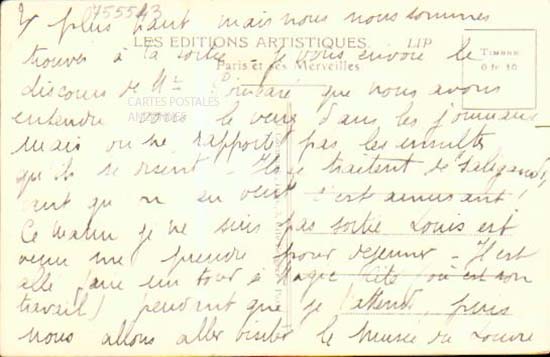 755543
plus haut mais nous nous sommes
LES EDITIONS ARTISTIQUES. LIP
trouvés à la sortie - je vous envoie le
Paris et ses Merveilles
TIMBRE
0 fr 10
discours de Mr Poincaré que nous avons
CARTES POSTALES
ANCIENNES
entendre vous le verrez dans les journaux
mais on ne rapporte pas les insultes
qu'ils se disent - Ils se traitent de saligauds,
tant qu'on en veut c'est amusant!
Ce matin je ne suis pas sortie Louis est
venu me prendre pour dejeuner - Il est
allé faire un tour à Magic City (où est son
travail) pendant que je l'attends, puis
nous allons aller visiter le Musée du Louvre